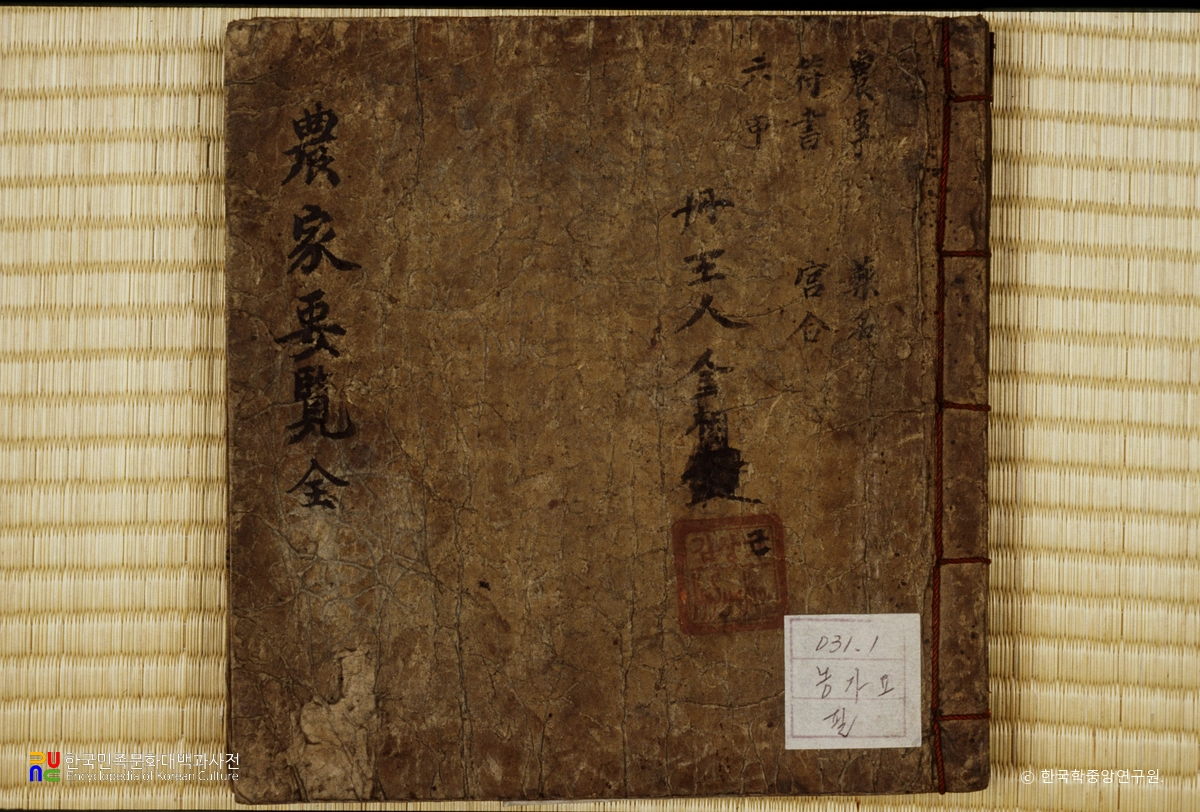 農事 藥名
符書 宮合
六甲
冊主人 金相
農家要覽 全
031.1
농가요
필
한국민족문화대백과사전
Encyclopedia of Korean Culture
© 한국학중앙연구원.